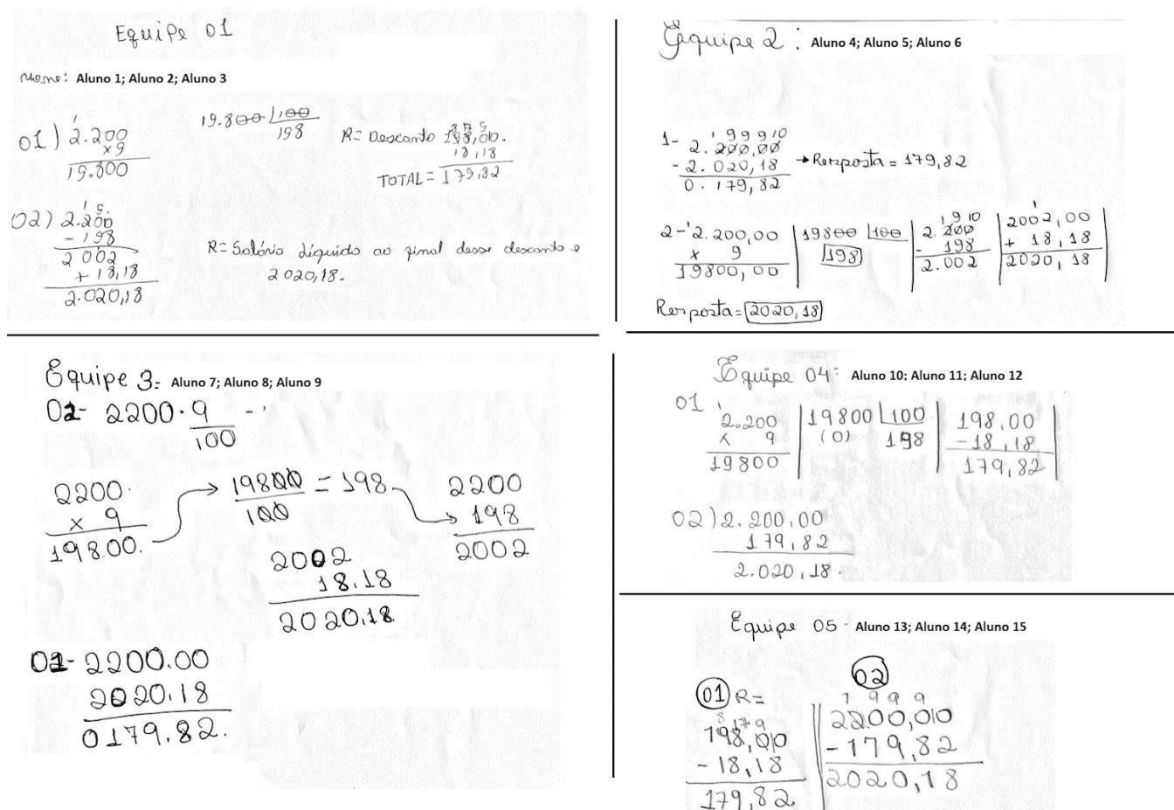 Equipe 01
Nome: Aluno 1; Aluno 2; Aluno 3
01) 2.200
x9
19.800
19.800 |100
198
R= Desconto 198,00.
18,18
TOTAL = 179,82
02) 2.200
-198
2002
+ 18,18
2.020,18
R= Salário líquido ao final desse desconto e
2020,18.
Equipe 2: Aluno 4; Aluno 5; Aluno 6
1- 2.200,00
- 2.020,18
0.179,82
→ Resposta = 179,82
2- 2.200,00
x 9
19800,00
19800 |100
198
2.200
- 198
2.002
2002,00
+ 18,18
2020,18
Resposta = 2020,18
Equipe 3: Aluno 7; Aluno 8; Aluno 9
02- 2200 · 9
100
2200
x 9
19800.
19800 = 198
100
2200
198
2002
2002
18.18
2020,18
01- 2200.00
2020.18
0179.82.
Equipe 04: Aluno 10; Aluno 11; Aluno 12
01
2.200
x 9
19800
19800 |100
(0) 198
198,00
-18,18
179,82
02) 2.200,00
179,82
2.020,18.
Equipe 05 - Aluno 13; Aluno 14; Aluno 15
01 R=
198,00
- 18,18
179,82
02
1 9 9 9
2200,010
- 179,82
2020,18